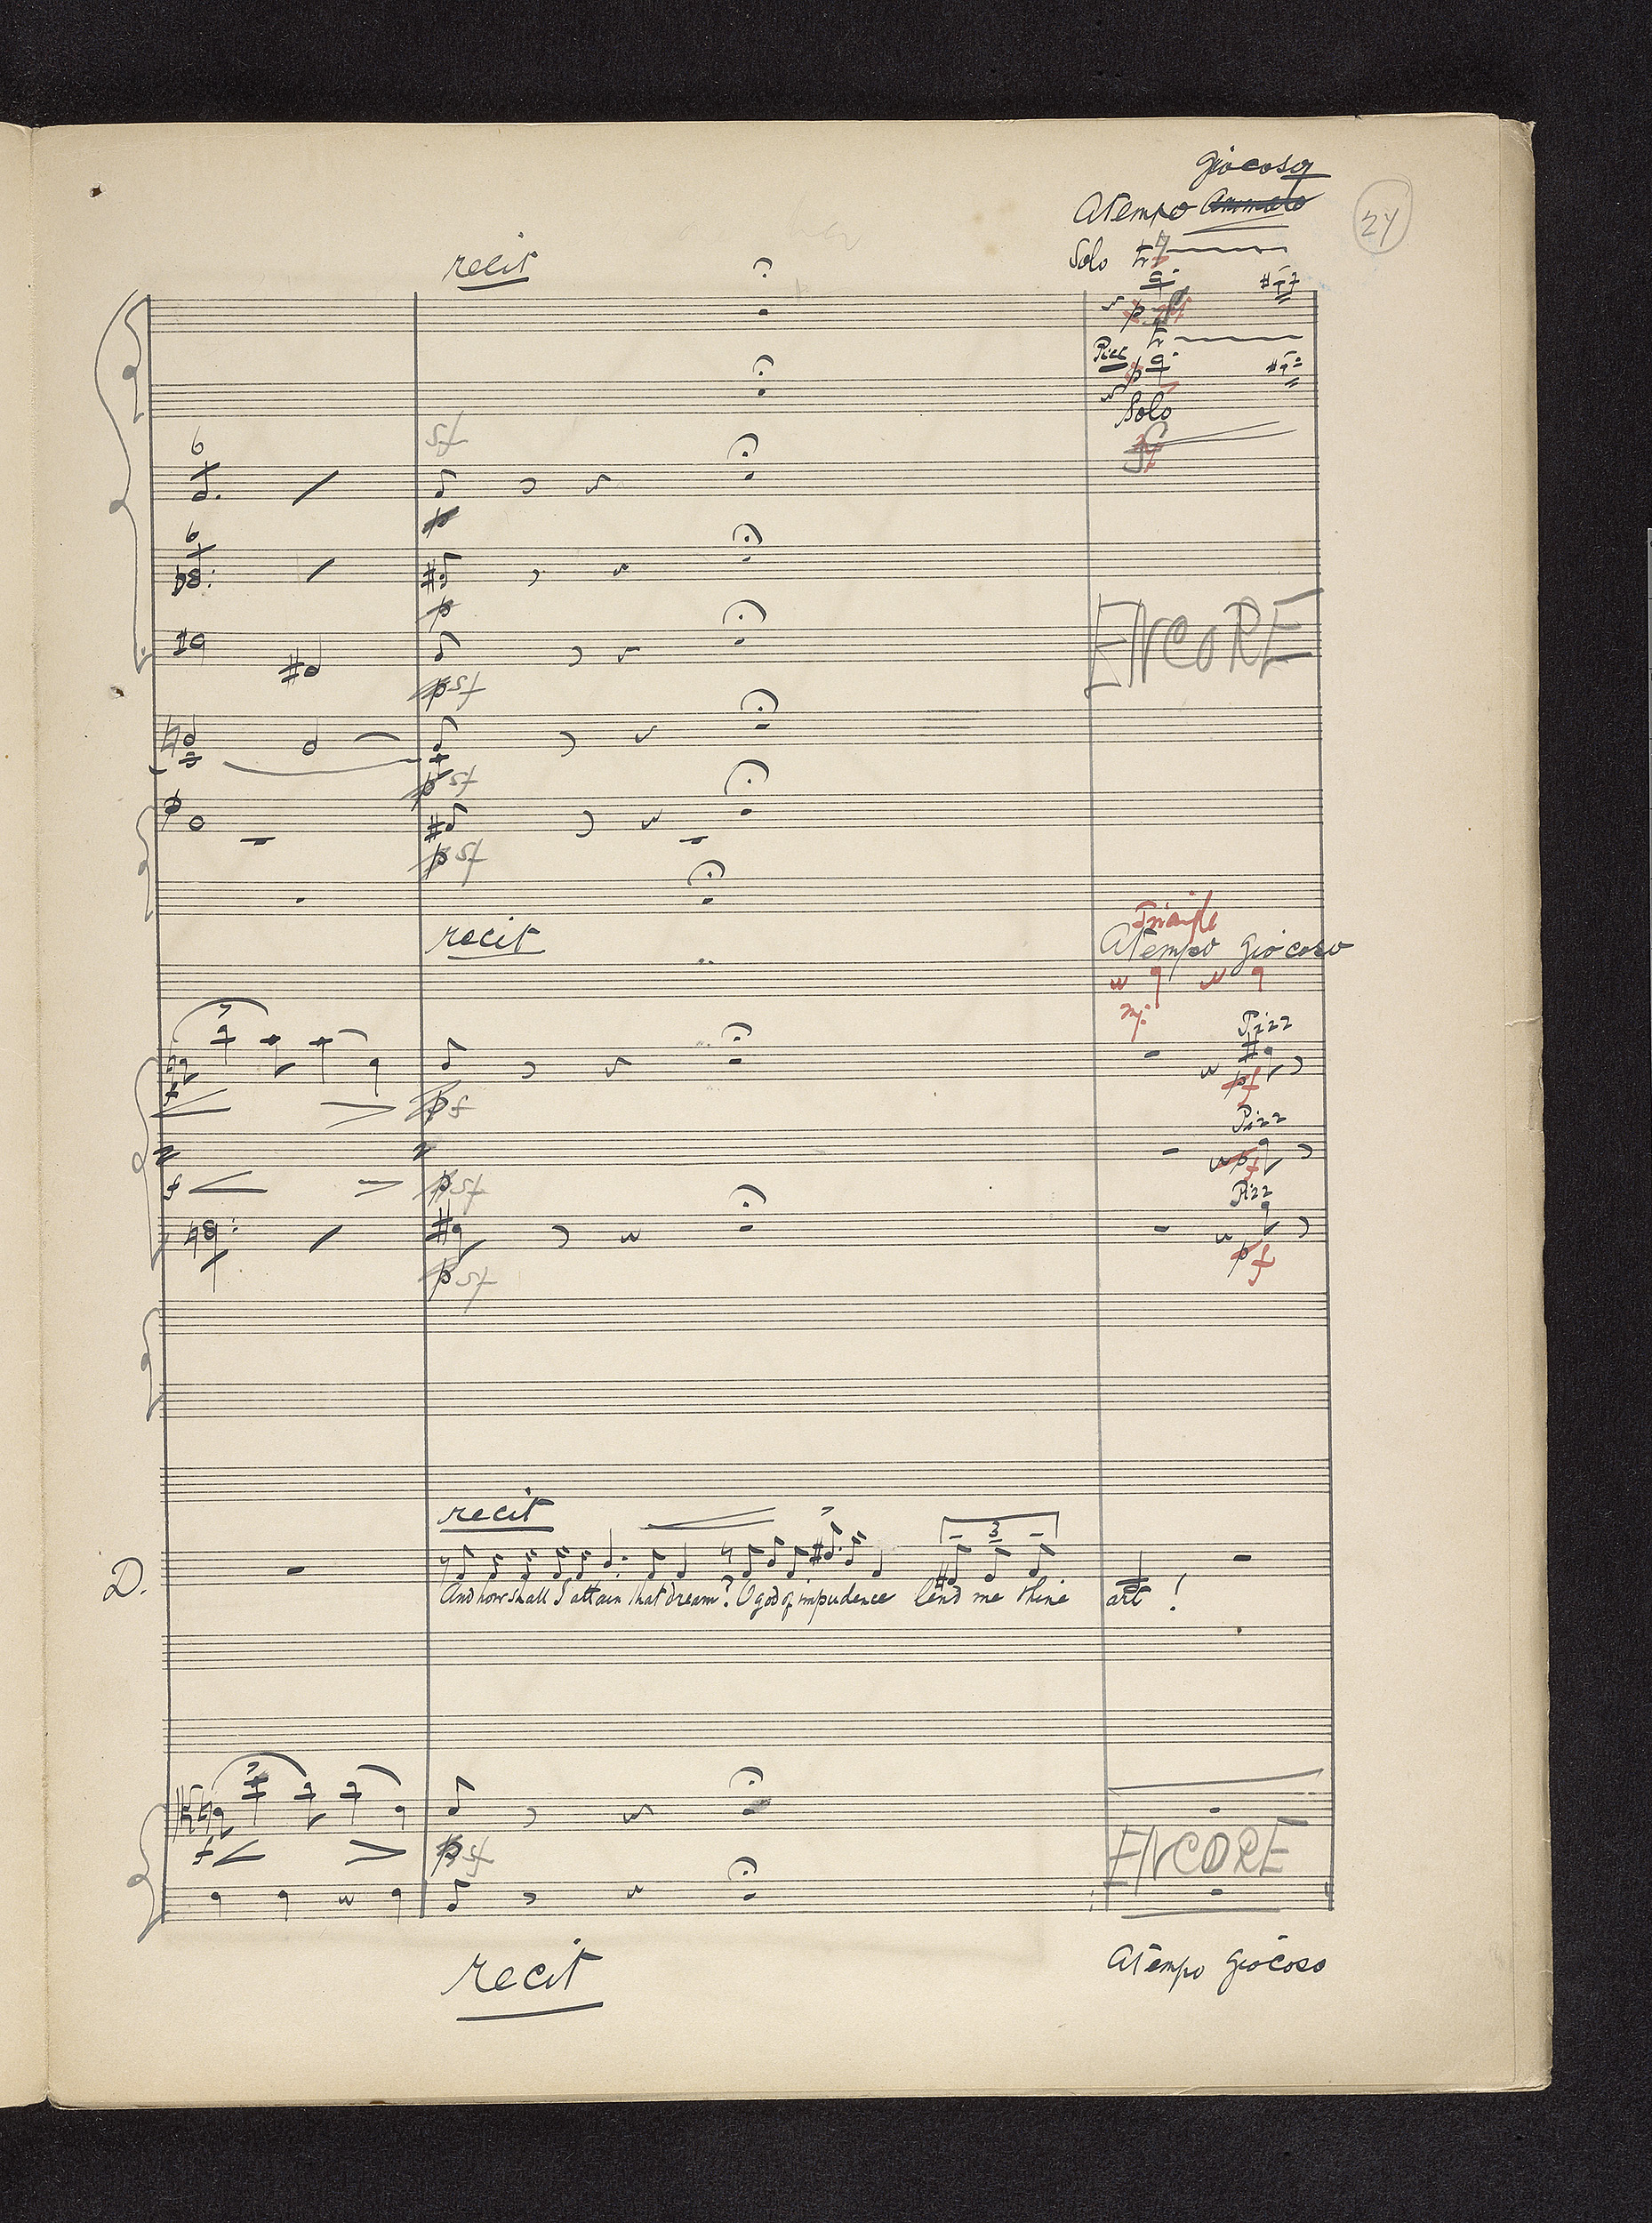 giocoso
Atempo Animato
24
recit
Solo tr
p
tr
Picc
p
Solo
6
sf
p
6
p
ENCORE
p sf
p sf
p sf
Triangle
recit
Atempo giocoso
mf
3
Pizz
f
p f
p f
Pizz
p f
f
p sf
Pizz
p f
p sf
recit
3
D.
And how shall I attain that dream? O god of impudence lend me thine art!
3
f
p sf
ENCORE
recit
Atempo giocoso